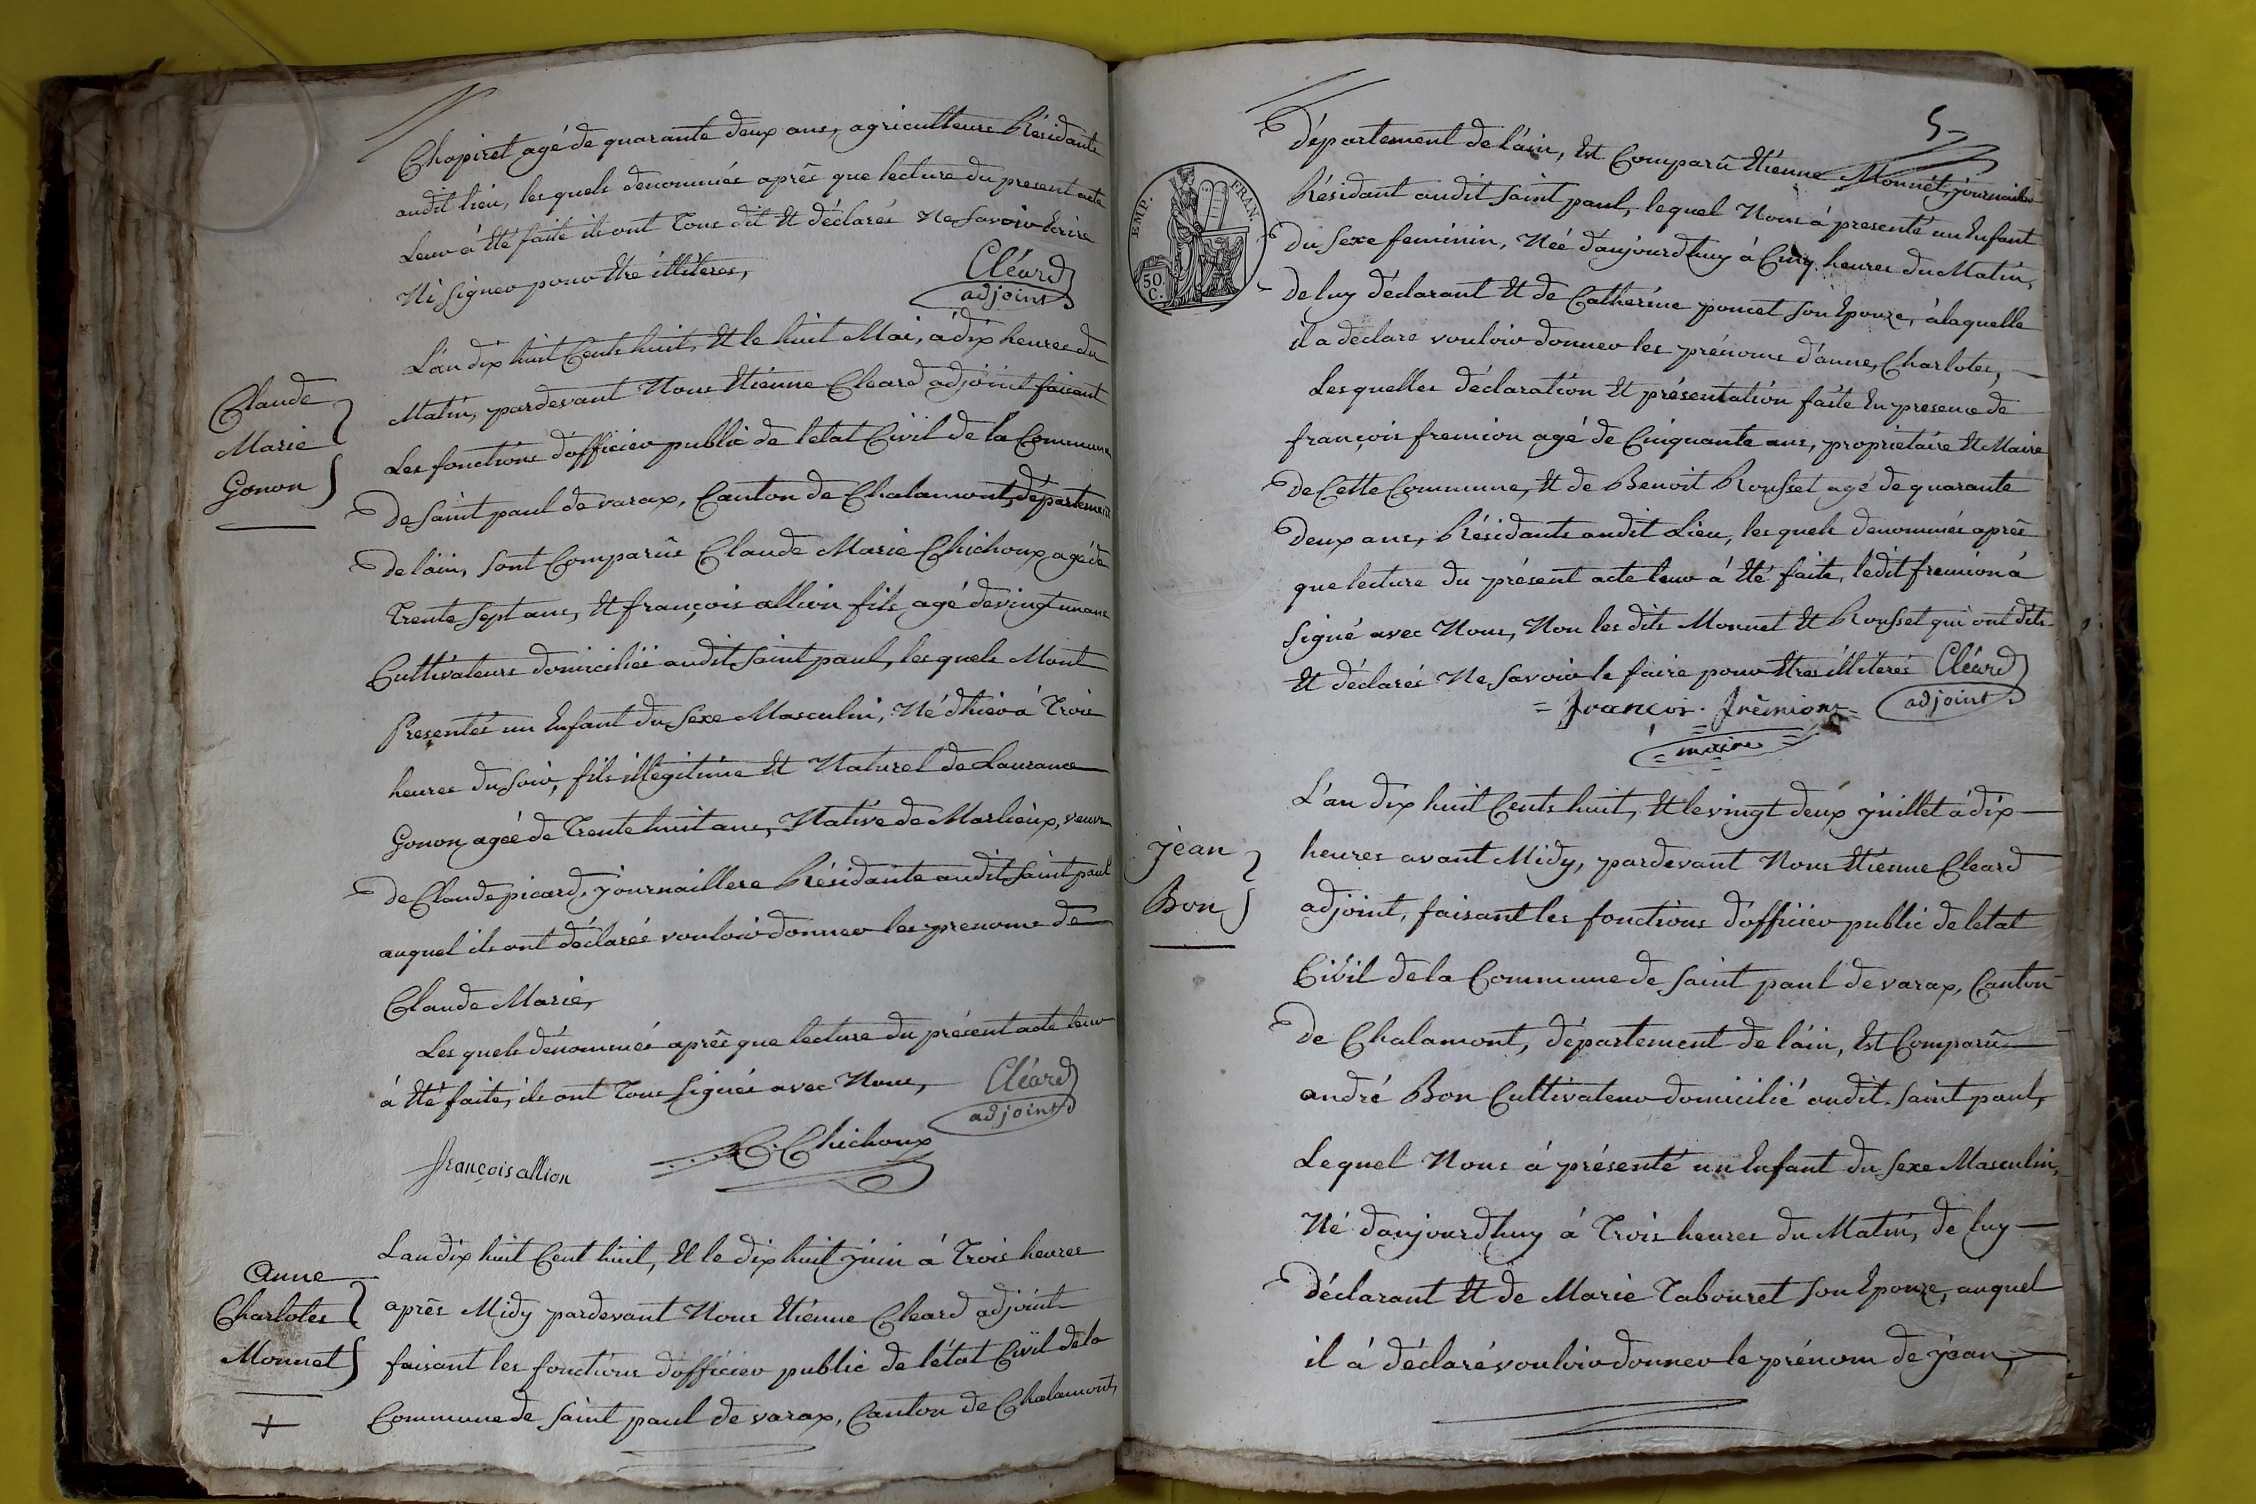 Chapiret agé de quarante deux ans, agriculteurs Résidants
audit lieu, les quels denommés après que lecture du present acte
Leur à Eté faite ils ont Tous dit Et déclarés Ne Savoir Ecrire
Ni Signer pour Etre illiteres,
Cléard
adjoint
Claude
Marie
Gonon
L'an dix huit Cents huit, Et le huit Mai, à dix heures du
Matin, pardevant Nous Etienne Cleard adjoint faisant
Les fonctions d'officier public de l'etat Civil de la Commune
De Saint paul de varax, Canton de Chalamont, département
De lain, Sont Comparûs Claude Marie Chichoux agé de
Trente Sept ans, Et françois allion fils, agé de vingt un ans
Cultivateurs domiciliés audit Saint paul, les quels M'ont
Presentés un Enfant du Sexe Masculin, Né d'hier à Trois
heures du Soir, fils illégitime Et Naturel de Laurance
Gonon agée de Trente huit ans, Native de Marlieux, veuve
De Claude picard, journaillere Résidante audit Saint paul
auquel ils ont déclarés vouloir donner les prenoms de
Claude Marie,
Les quels dénommés après que lecture du présent acte leur
à Eté faite, ils ont Tous Signés avec Nous,
Cléard
adjoint
françois allion
C. Chichoux
Anne
Charlotes
Monnet
+
L'an dix huit Cent huit, Et le dix huit juin à Trois heures
après Midy pardevant Nous Etienne Cleard adjoint
faisant les fonctions d'officier public de l'état Civil de la
Commune de Saint paul de varax, Canton de Chalamont,
5
EMP. FRAN.
50 C.
Département de láin, Est Comparû Etienne Monnet, journailier
Résidant audit Saint paul, lequel Nous à presenté un Enfant
Du Sexe feminin, Née d'aujourdhuy à Cinq heures du Matin,
De luy déclarant Et de Catherine poncet Son Epouze, à laquelle
il a déclaré vouloir donner les prénoms d'anne, Charlotes,
Les quelles déclaration Et présentation faite En presence de
françois fremion agé de Cinquante ans, propriétaire Et Maire
De Cette Commune, Et de Benoit Rousset agé de quarante
Deux ans, Résidants audit Lieu, les quels denommés après
que lecture du présent acte leur à Eté faite, ledit fremion à
Signé avec Nous, Non les dits Monnet Et Rousset qui ont dits
Et déclarés Ne Savoir le faire pour Etres illiterés Cléard
adjoint
= françois. frèmion =
maire
jean
Bon
L'an dix huit Cents huit, Et le vingt deux juillet à dix
heures avant Midy, pardevant Nous Etienne Cleard
adjoint, faisant les fonctions d'officier public de l'etat
Civil de la Commune de Saint paul de varax, Canton
De Chalamont, département de láin, Est Comparû
andré Bon Cultivateur domicilié audit Saint paul,
Lequel Nous à présenté un Enfant du Sexe Masculin,
Né d'aujourdhuy à Trois heures du Matin, de luy
Déclarant Et de Marie Tabouret Son Epouze, auquel
il à déclaré vouloir donner le prénom de jean,